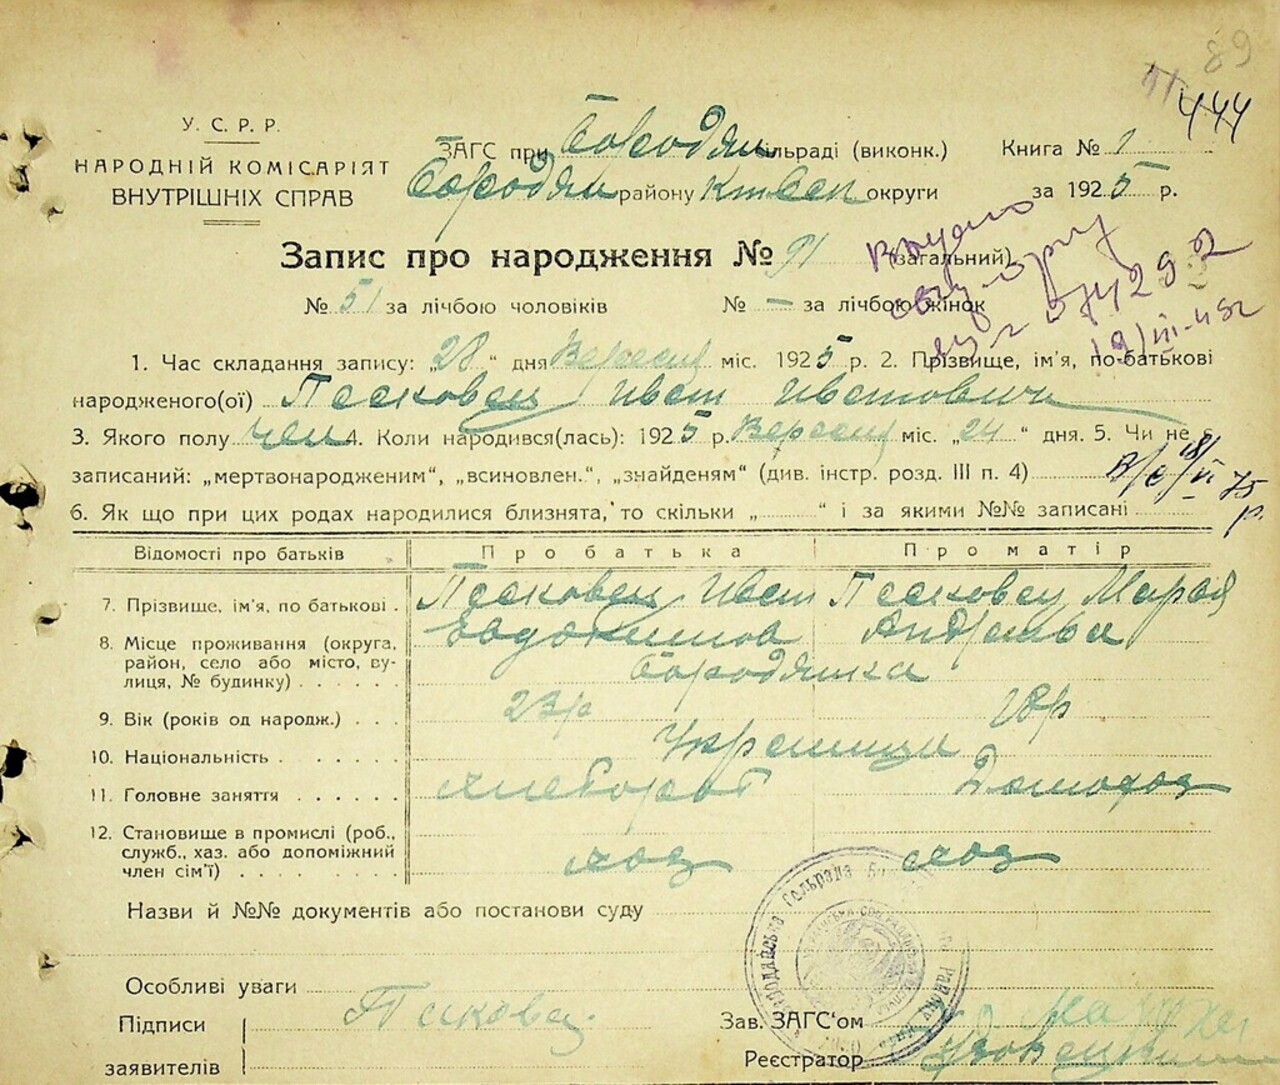 89
444
У. С. Р. Р.
НАРОДНІЙ КОМІСАРІЯТ
ВНУТРІШНІХ СПРАВ
ЗАГС при Бородян сільраді (виконк.) Книга № 1
Бородян району Київск округи за 1925 р.
Запис про народження № 91 (загальний)
№ 51 за лічбою чоловіків № — за лічбою жінок
19/III-45г
1. Час складання запису: „28 “ дня Вересня міс. 1925 р. 2. Прізвище, ім'я, по-батькові
народженого(ої) Песковец Иван Иванович
3. Якого полу Чол 4. Коли народився(лась): 1925 р. Вересня міс. „24 “ дня. 5. Чи не є
записаний: „мертвонародженим“, „всиновлен.“, „знайденям“ (див. інстр. розд. III п. 4)
18/VI 75 р.
6. Як що при цих родах народилися близнята, то скільки „ “ і за якими №№ записані
Відомості про батьків Про батька Про матір
7. Прізвище, ім'я, по батькові . Песковец Иван Песковец Мария
Евдокимов Андреевна
8. Місце проживання (округа,
район, село або місто, ву-
лиця, № будинку) . . . . . . Бородянка
9. Вік (років од народж.) . . . 23р 18р
10. Національність . . . . . . . Украинци
11. Головне заняття . . . . . . хлебороб Домохоз
12. Становище в промислі (роб.,
служб., хаз. або допоміжний
член сім'ї) . . . . . . . . . хоз хоз
Назви й №№ документів або постанови суду
Особливі уваги
Підписи
заявителів
Зав. ЗАГС'ом
Реєстратор